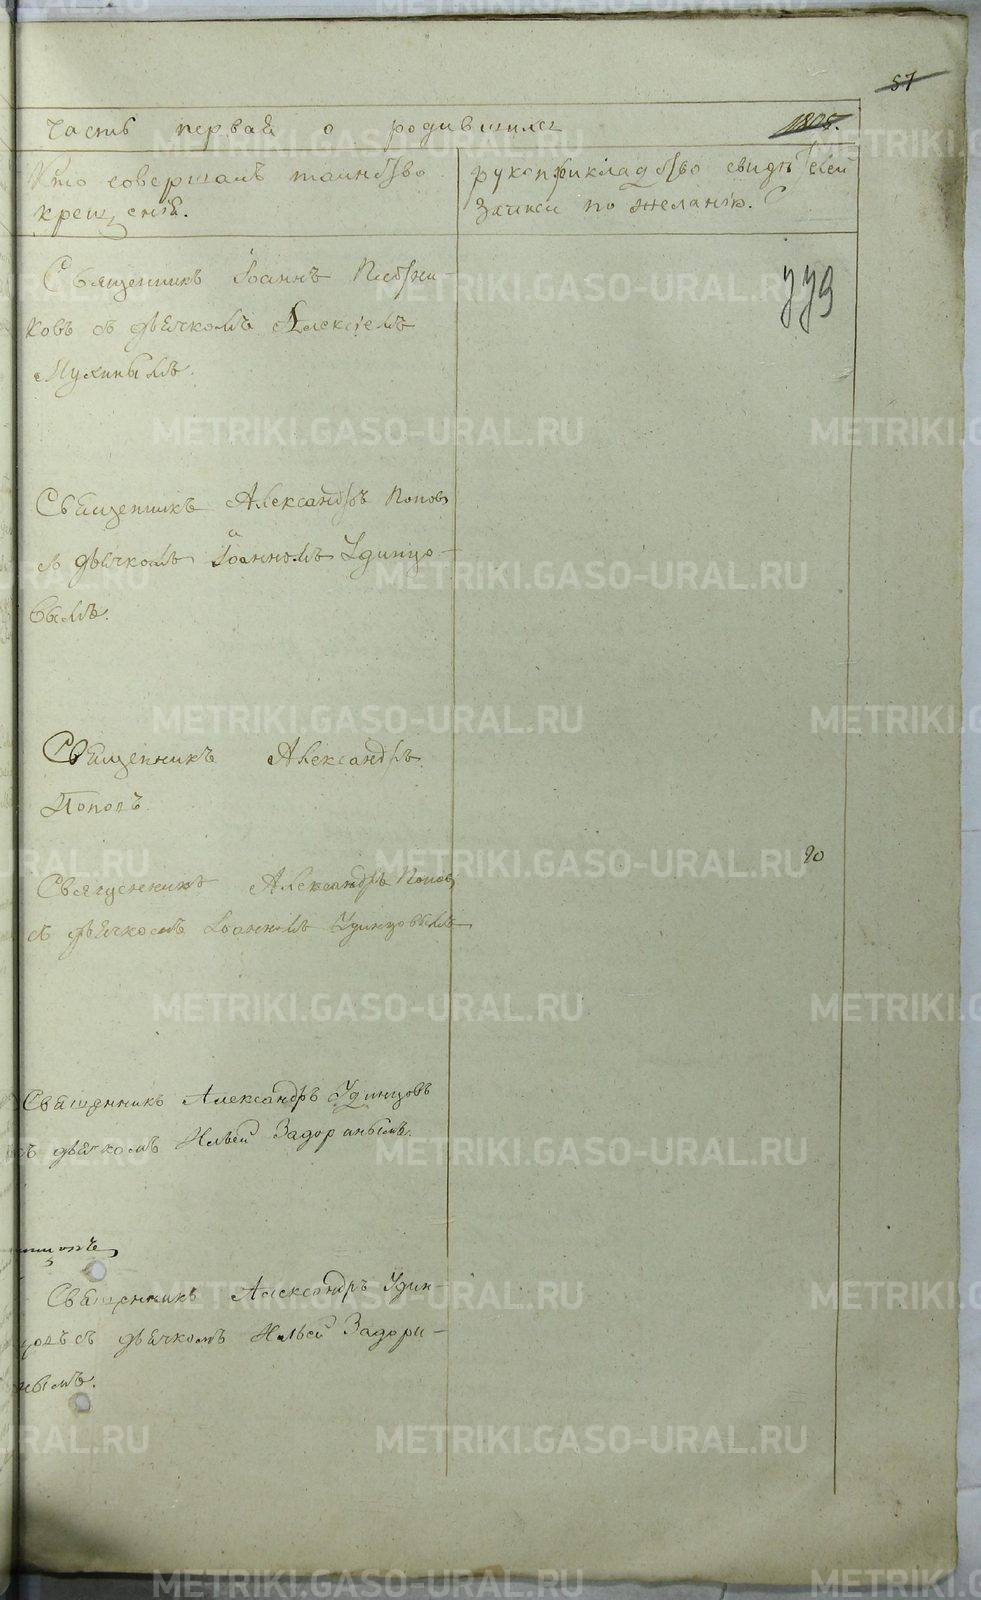 57
Часть первая о родившихся 1808.
Кто совершалъ таинство
крещенія.
рукоприкладство свидѣтелей
записи по желанію.
Священникъ Іоаннъ
ковъ съ дьячкомъ Алексіемъ
Мухинымъ.
Священникъ Александръ Попов
съ дьячкомъ Іоанномъ Удинцо-
вымъ.
Священникъ Александръ
Поповъ.
90
Священникъ Александръ Попов
съ дьячкомъ Іоанномъ Удинцовымъ
Священникъ Александръ Удинцовъ
съ дьячкомъ Ильей Задоринымъ.
Священникъ Александръ Удин-
цовъ съ дьячкомъ Ильей Задори-
нымъ.
METRIKI.GASO-URAL.RU